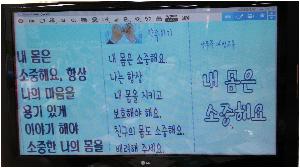 내 몸은
소중해요, 항상
나의 마음을
용기 있게
이야기 해야
소중한 나의 몸을
내 몸은 소중해요.
나는 항상
내 몸을 지키고
보호해야 해요.
친구의 몸도 소중해요.
배려해 주세요.
내 몸은
소중해요
LG